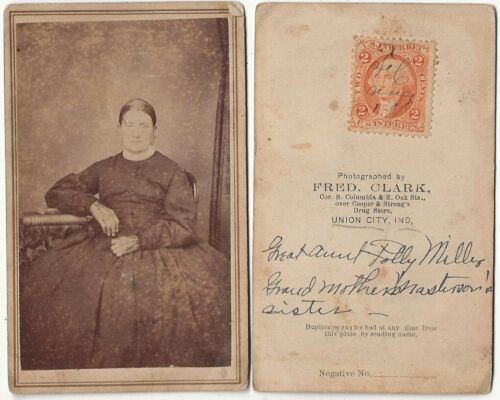 U.S. INTER. REV.
2 2
TWO CENTS
U.S. INTER. REV.
Photographed by
FRED. CLARK,
Cor. S. Columbia & E. Oak Sts.,
over Cooper & Strong's
Drug Store,
UNION CITY, IND,
Great Aunt Polly Miller
Grand Mother
sister —
Duplicates may be had at any time from
this plate by sending name,
Negative No.